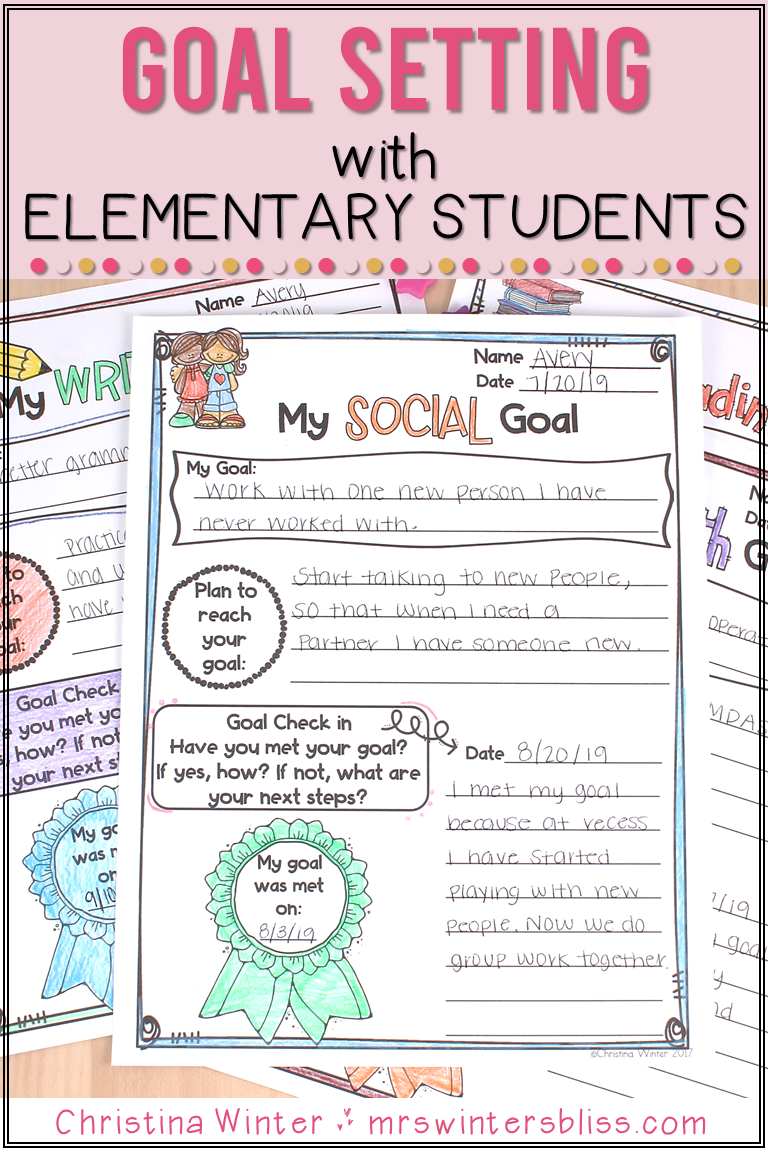 GOAL SETTING
with
ELEMENTARY STUDENTS
Name Avery
My
better
practice
and
have
Goal Check
you met
how? If not
your next
My
was
on
Name Avery
Date 7/20/19
My SOCIAL Goal
My Goal:
Work with one new person I have
never worked with.
Plan to
reach
your
goal:
Start talking to new people,
so that when I need a
Partner I have someone new.
Goal Check in
Have you met your goal?
If yes, how? If not, what are
your next steps?
Date 8/20/19
I met my goal
because at recess
I have started
playing with new
people. Now we do
group work together.
My goal
was met
on:
8/3/19
©Christina Winter 2017
Christina Winter mrswintersbliss.com